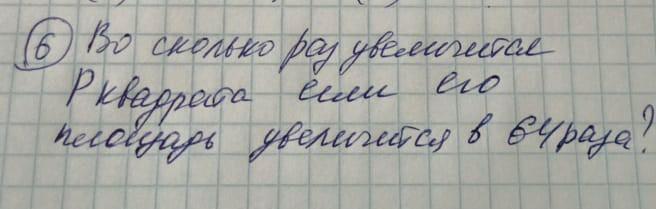 6 Во сколько раз увеличится
P квадрата если его
площадь увеличится в 64 раза?